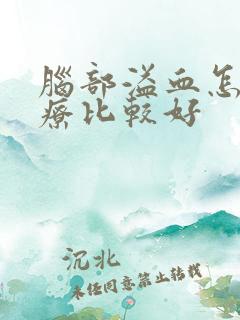 腦部溢血怎
療比較好
沉北
未经同意禁止转载